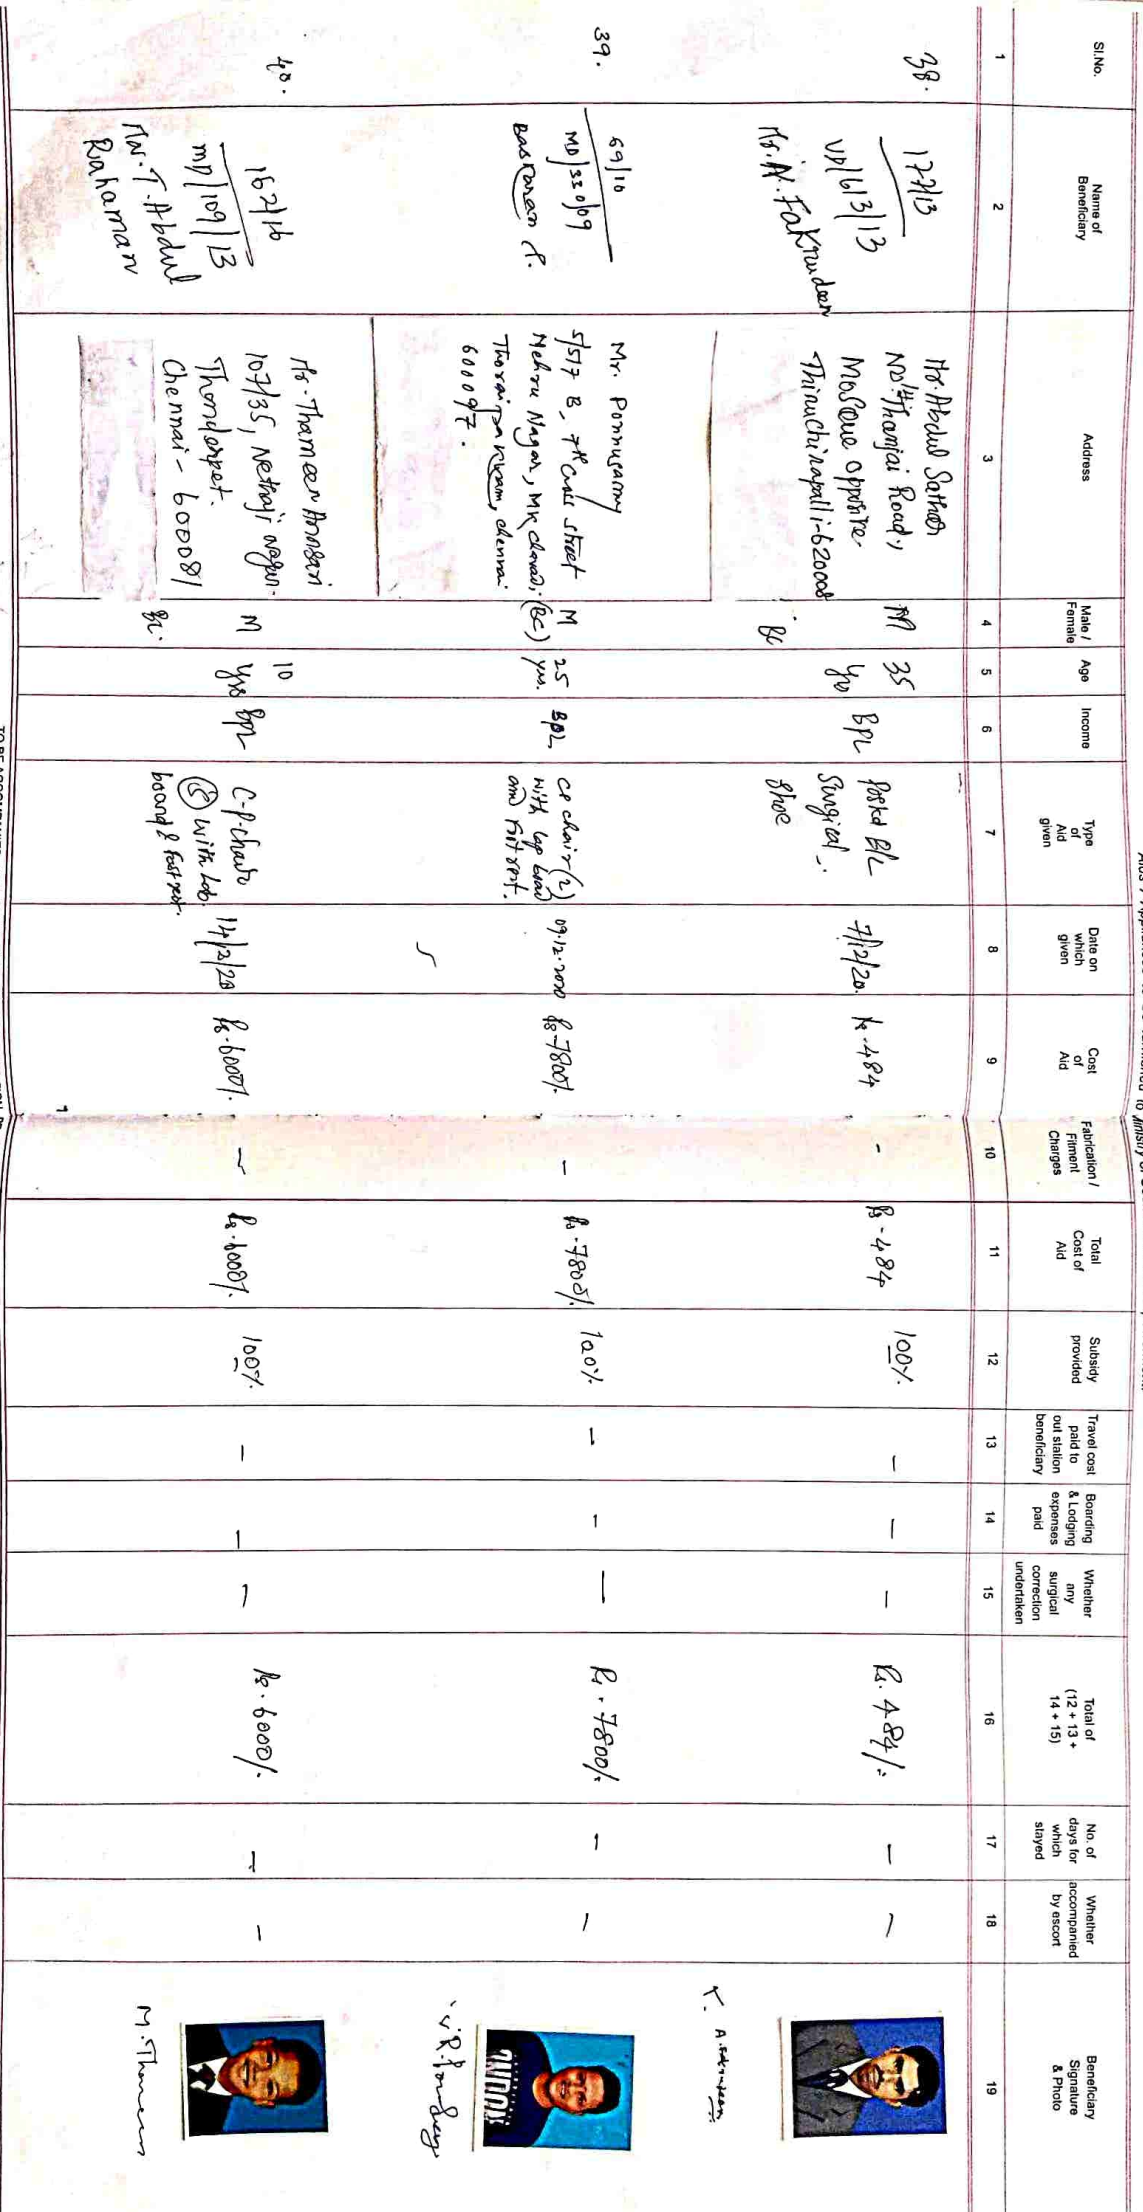 SI.No.
Name of
Beneficiary
Address
Male /
Female
Age
Income
Type
of
Aid
given
Date on
which
given
Cost
of
Aid
Fabrication /
Fitment
Charges
Total
Cost of
Aid
Subsidy
provided
Travel cost
paid to
out station
beneficiary
Boarding
& Lodging
expenses
paid
Whether
any
surgical
correction
undertaken
Total of
(12 + 13 +
14 + 15)
No. of
days for
which
stayed
Whether
accompanied
by escort
Beneficiary
Signature
& Photo
1 2 3 4 5 6 7 8 9 10 11 12 13 14 15 16 17 18 19
38.
177/13
Mr. Abdul Sathar
Thanjai Road,
Mosque opposite
Thiruchirapalli-620008
M
BC
35
BPL
Surgical
Shoe
7/12/20.
Rs.484
-
Rs.484
100%.
-
-
-
Rs. 484/-
-
-
39.
69/10
MD/330/09
Baskaran P.
Mr. Ponnusamy
5/517 B, 7th Cross street
Nehru Nagar, MK
Thoraipakkam, chennai
600097.
M
(BC)
25
yrs.
BPL
CP chair (2)
with lap board
and Foot rest.
09.12.2020
Rs.7800/-
-
Rs.7800/-
100%
-
-
-
Rs.7800/-
-
-
40.
162/16
MD/109/13
Mr. T. Abdul
Rahaman
Mr. Thameen Ansari
107/35, Nethaji nagar.
Thondarpet.
Chennai - 600081
M
BC.
10
Yrs
BPL
C-P-chair
with Lab
board & Foot rest.
14/12/20
Rs.6000/-
-
Rs.6000/-
100%.
-
-
-
Rs.6000/-
-
-
M. Thameen